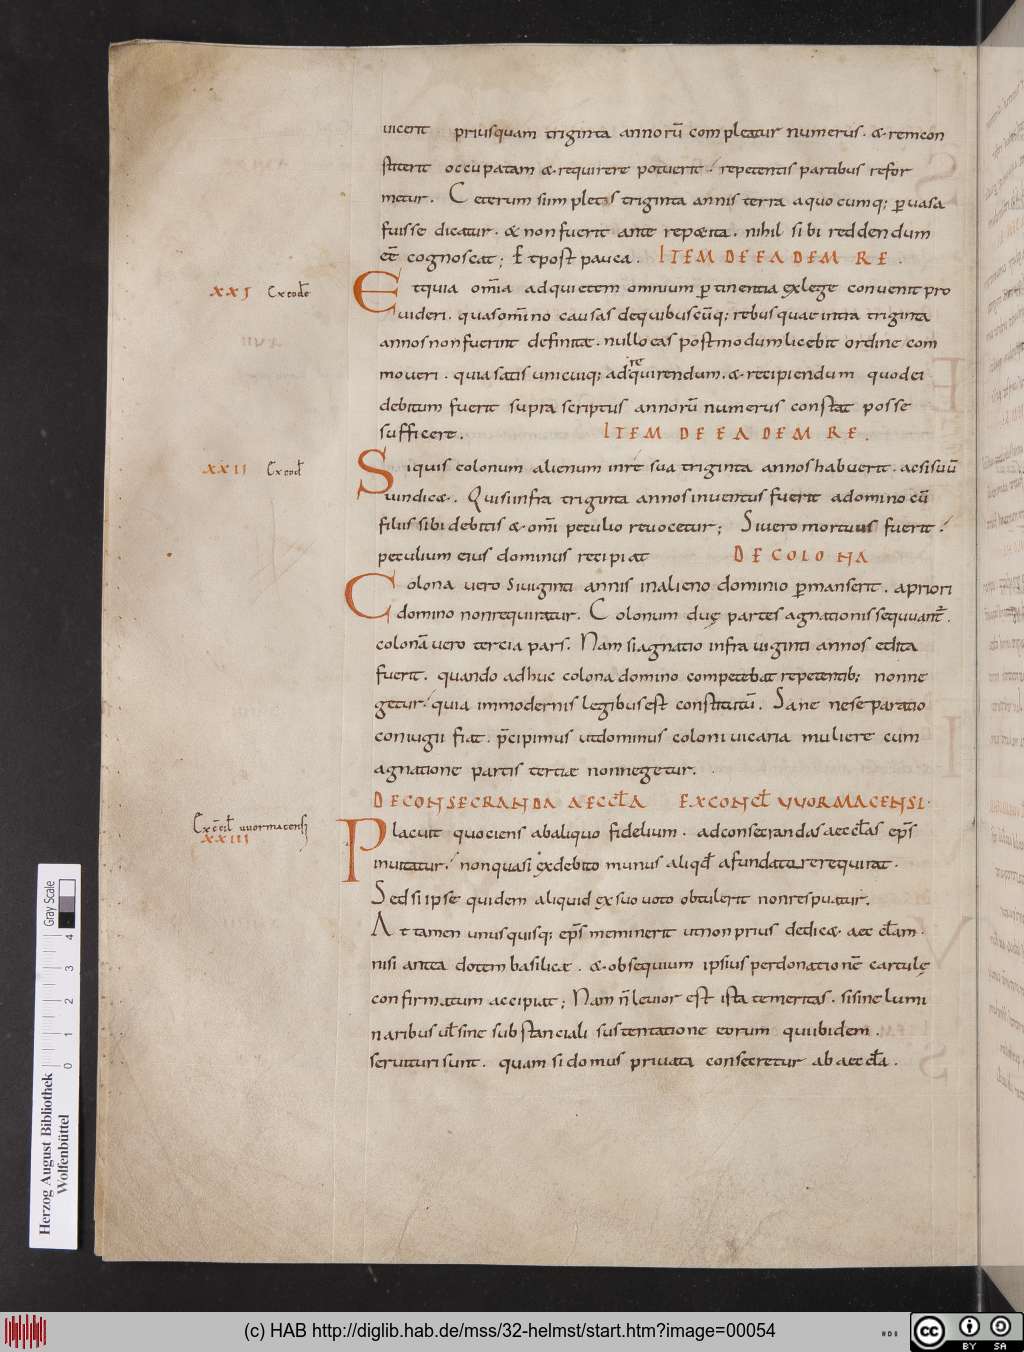 uicerit priusquam triginta annorū compleatur numerus. & remcon
stiterit occupatam & requirere potuerit. repetentis partibus refor
metur. Ceterum siimpletis triginta annis terra aquocumq; ꝑuasa
fuisse dicatur. & nonfuerit ante repetita. nihil sibi reddendum
eē cognoscat; Et post pauca. ITEM DE EADEM RE.
XXI Excode
Etquia om̄ia adquietem omnium ꝑtinentia ęxlege conuenit pro
uideri. quasom̄ino causas dequibuscūq; rebus quae intra triginta
annos nonfuerint definitae. nullo eas postmodum licebit ordine com
moueri. quia satis unicuiq; adrequirendum. & recipiendum quodei
debitum fuerit supra scriptus annorū numerus constat posse
sufficere. ITEM DE EADEM RE.
XXII Excod
Siquis colonum alienum inre sua triginta annos habuerit. acsisuū
uindic&. Quisiinfra triginta annos inuentus fuerit adomino cū
filiis sibi debitis & om̄i peculio reuocetur; Siuero mortuus fuerit.
peculium eius dominus recipiat DE COLONA
Colona uero siuiginti annis inalieno dominio ꝑmanserit. apriori
domino nonrequiratur. Colonum duę partes agnationis sequuant̄.
colonā uero tercia pars. Nam siagnatio infra uiginti annos edita
fuerit. quando adhuc colona domino competebat repetentib; nonne
getur. quia immodernis legibus est constitutū. Sane nesepatatio
coniugii fiat. p̄cipimus utdominus coloni uicaria muliere cum
agnatione partis tertiae nonnegetur.
DE CONSECRANDA AECCL̄A EX CONCL̄ VVORMACENSI.
Excōcil uuormacensi
XXIII
Placuit quociens abaliquo fidelium. adconsecrandas aeccl̄as ep̄s
inuitatur. nonquasi ęxdebito munus aliqd̄ afundatore requirat.
Sed siipse quidem aliquid ęx suo uoto obtulerit nonrespuatur.
Attamen unusquisq; ep̄s meminerit utnon prius dedic& aeccl̄am.
nisi antea dotem basilicae. & obsequium ipsius perdonationē cartulę
confirmatum accipiat; Nam n̄ leuior est ista temeritas. sisine lumi
naribus ul̄ sine substanciali sustentatione eorum quiibidem.
seruituri sunt. quam si domus priuata consecretur ab aeccl̄a.
Gray Scale
0 1 2 3 4
Herzog August Bibliothek
Wolfenbüttel
(c) HAB http://diglib.hab.de/mss/32-helmst/start.htm?image=00054
cc BY SA